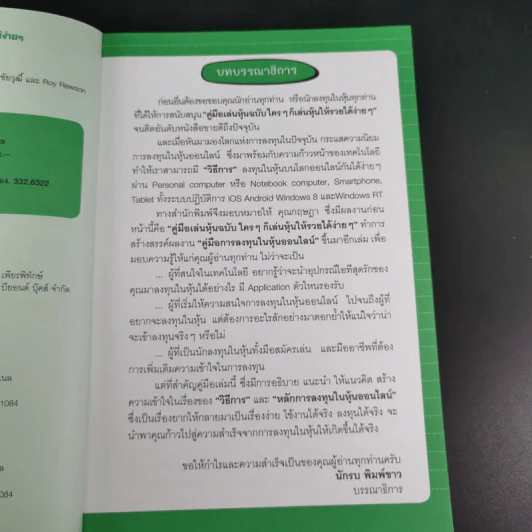 ง่ายๆ
ชัยวุฒิ์ และ Roy Rewson
332.6322
เพียรพิทักษ์
บียอนด์ บุ๊คส์ จำกัด
1084
1084
บทบรรณาธิการ
ก่อนอื่นต้องขอขอบคุณนักอ่านทุกท่าน หรือนักลงทุนในหุ้นทุกท่าน
ที่ได้ให้การสนับสนุน "คู่มือเล่นหุ้นฉบับ ใคร ๆ ก็เล่นหุ้นให้รวยได้ง่าย ๆ"
จนติดอันดับหนังสือขายดีถึงปัจจุบัน
และเมื่อหันมามองโลกแห่งการลงทุนในปัจจุบัน กระแสความนิยม
การลงทุนในหุ้นออนไลน์ ซึ่งมาพร้อมกับความก้าวหน้าของเทคโนโลยี
ทำให้เราสามารถมี "วิธีการ" ลงทุนในหุ้นบนโลกออนไลน์กันได้ง่าย ๆ
ผ่าน Personal computer หรือ Notebook computer, Smartphone,
Tablet ทั้งระบบปฏิบัติการ IOS Android Windows 8 และWindows RT
ทางสำนักพิมพ์จึงมอบหมายให้ คุณกฤษฎา ซึ่งมีผลงานก่อน
หน้านี้คือ "คู่มือเล่นหุ้นฉบับ ใคร ๆ ก็เล่นหุ้นให้รวยได้ง่าย ๆ" ทำการ
สร้างสรรค์ผลงาน "คู่มือการลงทุนในหุ้นออนไลน์" ขึ้นมาอีกเล่ม เพื่อ
มอบความรู้ให้แก่คุณผู้อ่านทุกท่าน ไม่ว่าจะเป็น
... ผู้ที่สนใจในเทคโนโลยี อยากรู้ว่าจะนำอุปกรณ์ไอทีสุดรักของ
คุณมาลงทุนในหุ้นได้อย่างไร มี Application ตัวไหนรองรับ
... ผู้ที่เริ่มให้ความสนใจการลงทุนในหุ้นออนไลน์ ไปจนถึงผู้ที่
อยากจะลงทุนในหุ้น แต่ต้องการอะไรสักอย่างมาตอกย้ำให้แน่ใจว่าน่า
จะเข้าลงทุนจริง ๆ หรือไม่
... ผู้ที่เป็นนักลงทุนในหุ้นทั้งมือสมัครเล่น และมืออาชีพที่ต้อง
การเพิ่มเติมความเข้าใจในการลงทุน
แต่ที่สำคัญคู่มือเล่มนี้ ซึ่งมีการอธิบาย แนะนำ ให้แนวคิด สร้าง
ความเข้าใจในเรื่องของ "วิธีการ" และ "หลักการลงทุนในหุ้นออนไลน์"
ซึ่งเป็นเรื่องยากให้กลายมาเป็นเรื่องง่าย ใช้งานได้จริง ลงทุนได้จริง จะ
นำพาคุณก้าวไปสู่ความสำเร็จจากการลงทุนในหุ้นให้เกิดขึ้นได้จริง
ขอให้กำไรและความสำเร็จเป็นของคุณผู้อ่านทุกท่านครับ
นักรบ พิมพ์ขาว
บรรณาธิการ